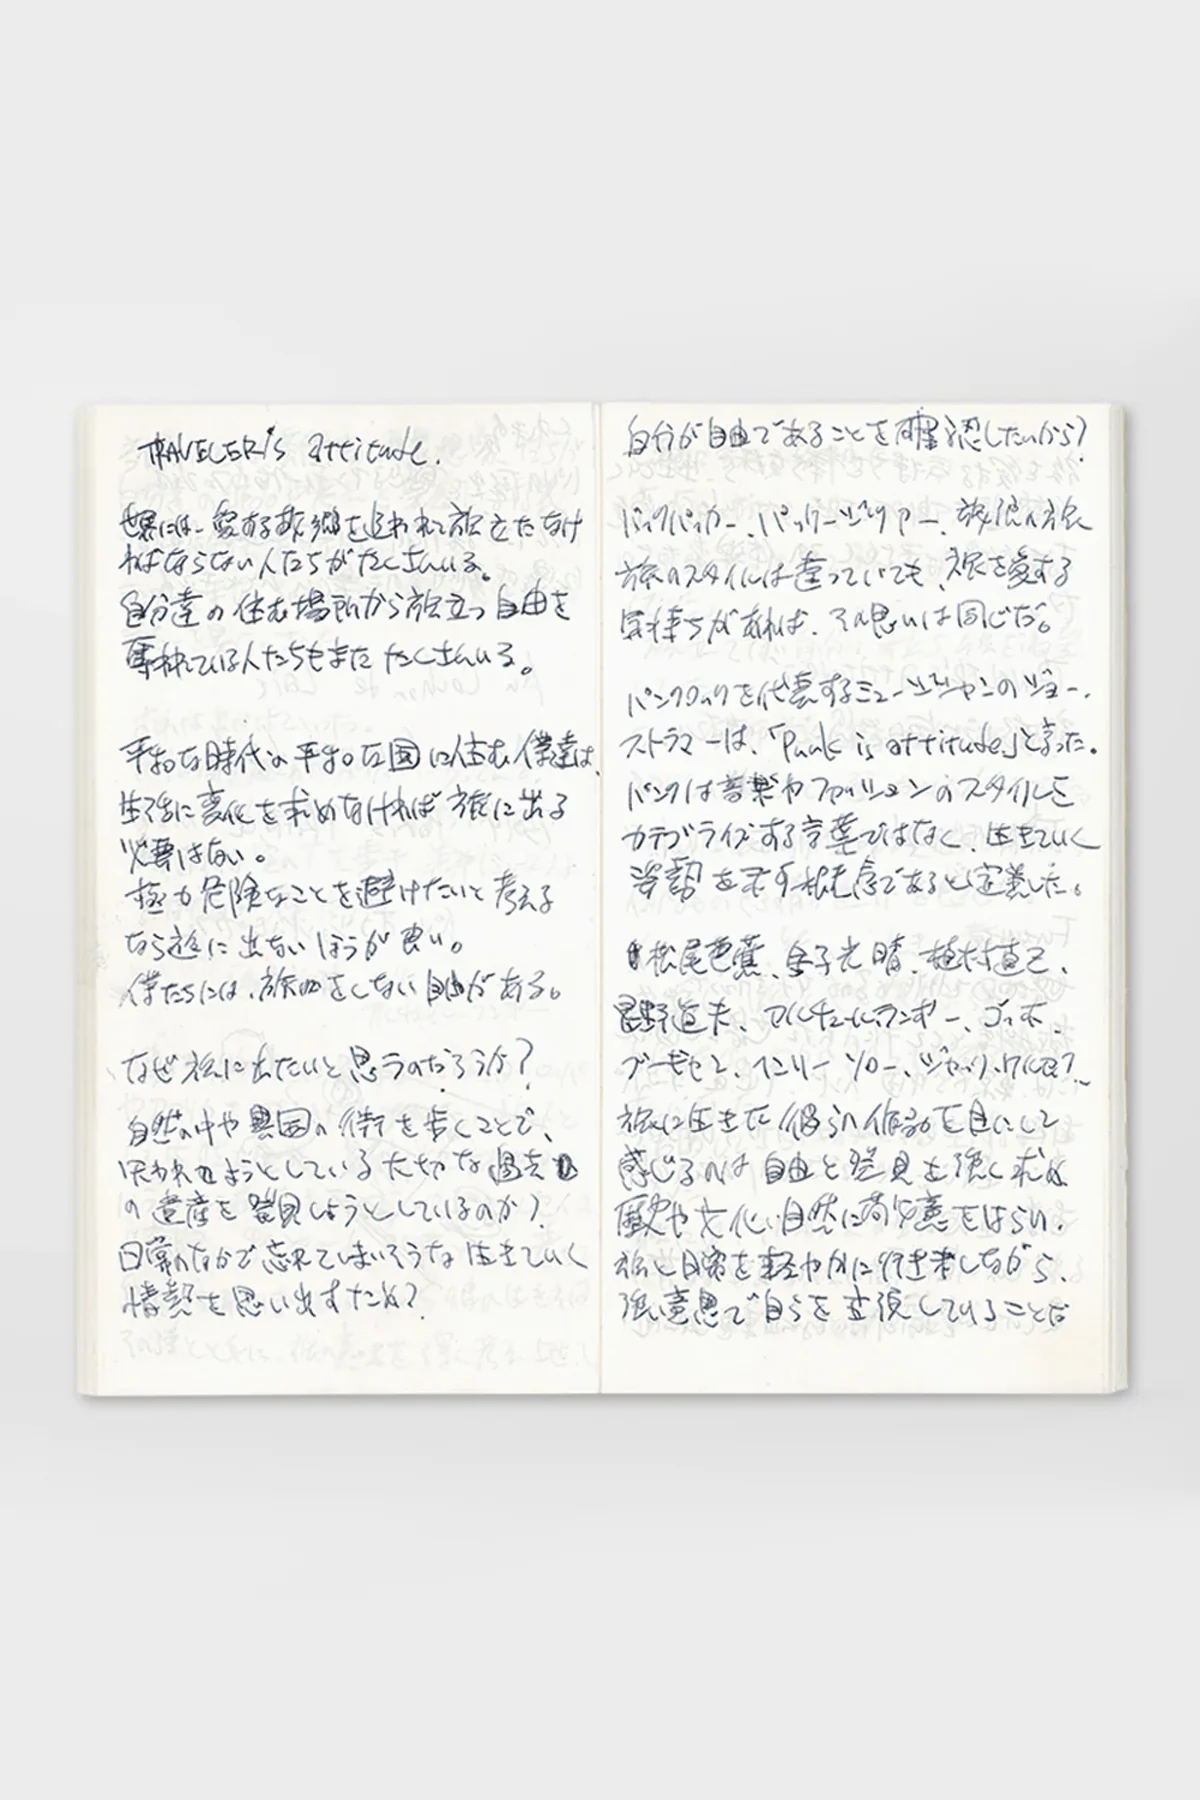 TRAVELER'S attitude.
世界には、愛する故郷を追われて旅立たなけ
ればならない人たちがたくさんいる。
自分達の住む場所から旅立つ自由を
奪われている人たちもまたたくさんいる。
平和な時代の平和な国に住む僕達は、
生活に変化を求めなければ旅に出る
必要はない。
極力危険なことを避けたいと考える
なら旅に出ないほうが良い。
僕たちには、旅をしない自由がある。
なぜ旅に出たいと思うのだろうか?
自然の中や異国の街を歩くことで、
失われせようとしている大切な過去
の遺産を発見しようとしているのか?
日常のなかで忘れてしまいそうな生きていく
情熱を思い出すため?
自分が自由であることを確認したいから?
バックパッカー、パッケージツアー、放浪の旅
旅のスタイルは違っていても、旅を愛する
気持ちがあれば、その思いは同じだ。
パンクロックを代表するミュージシャンのジョー・
ストラマーは、「Punk is attitude」と言った。
パンクは音楽やファッションのスタイルを
カテゴライズする言葉ではなく、生きていく
姿勢を示す概念であると定義した。
松尾芭蕉、金子光晴、植村直己、
星野道夫、アルチュール・ランボー、ゴッホ、
ブーギセン、ヘンリー・ソロー、ジャック・ケルアック
旅に生きた彼らの作品を目にして
感じるのは自由と発見を強く求め
歴史や文化、自然に敬意をはらい、
旅と日常を軽やかに行き来しながら、
強い意思で自らを主張していることだ